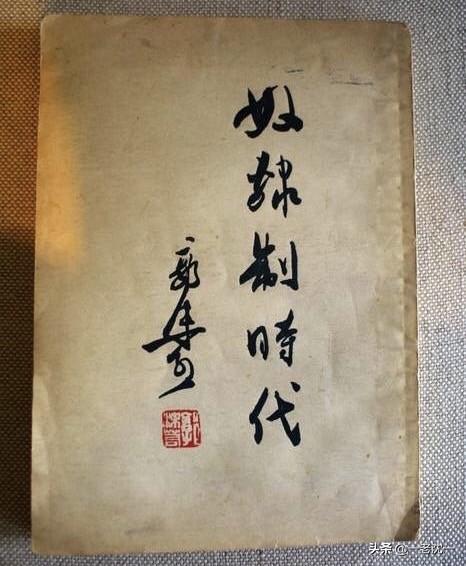 奴隸制時代
郭沫若
郭沫若
头条 @一老沈一